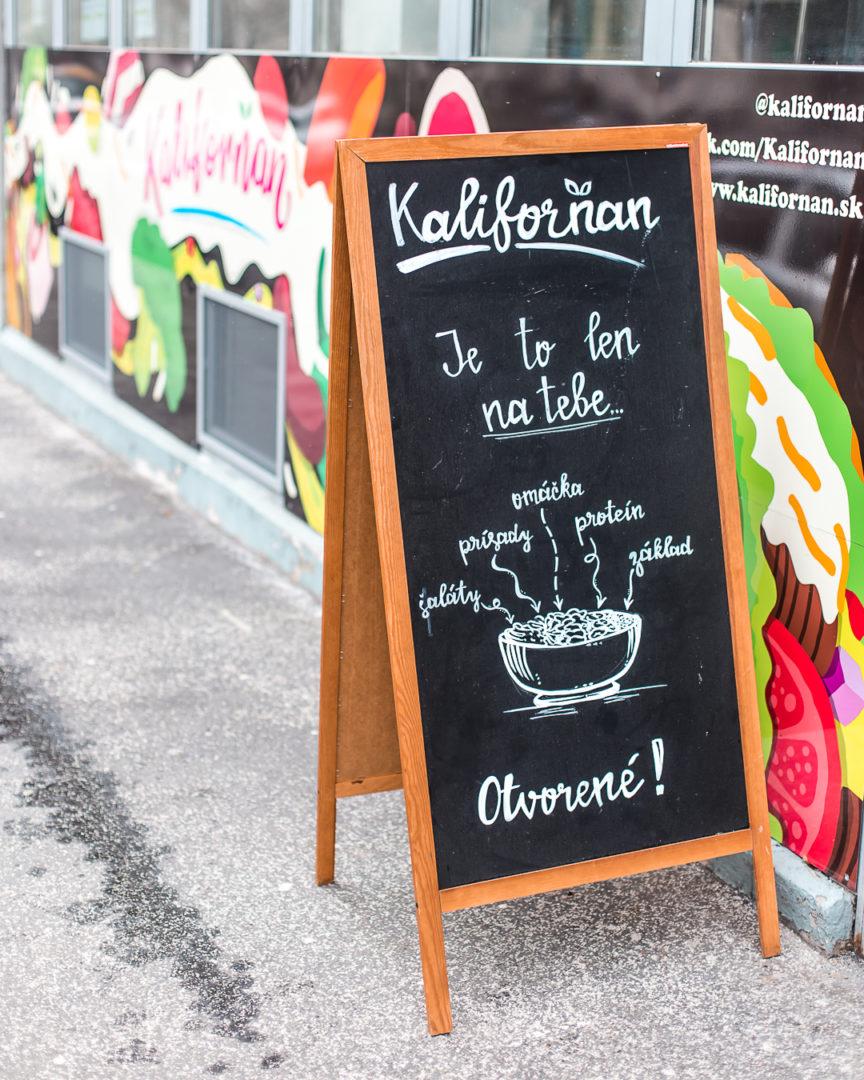 Kaliforňan
@kalifornan
k.com/Kalifornan
www.kalifornan.sk
Kaliforňan
Je to len
na tebe...
omáčka
prísady
proteín
základ
šaláty
Otvorené!